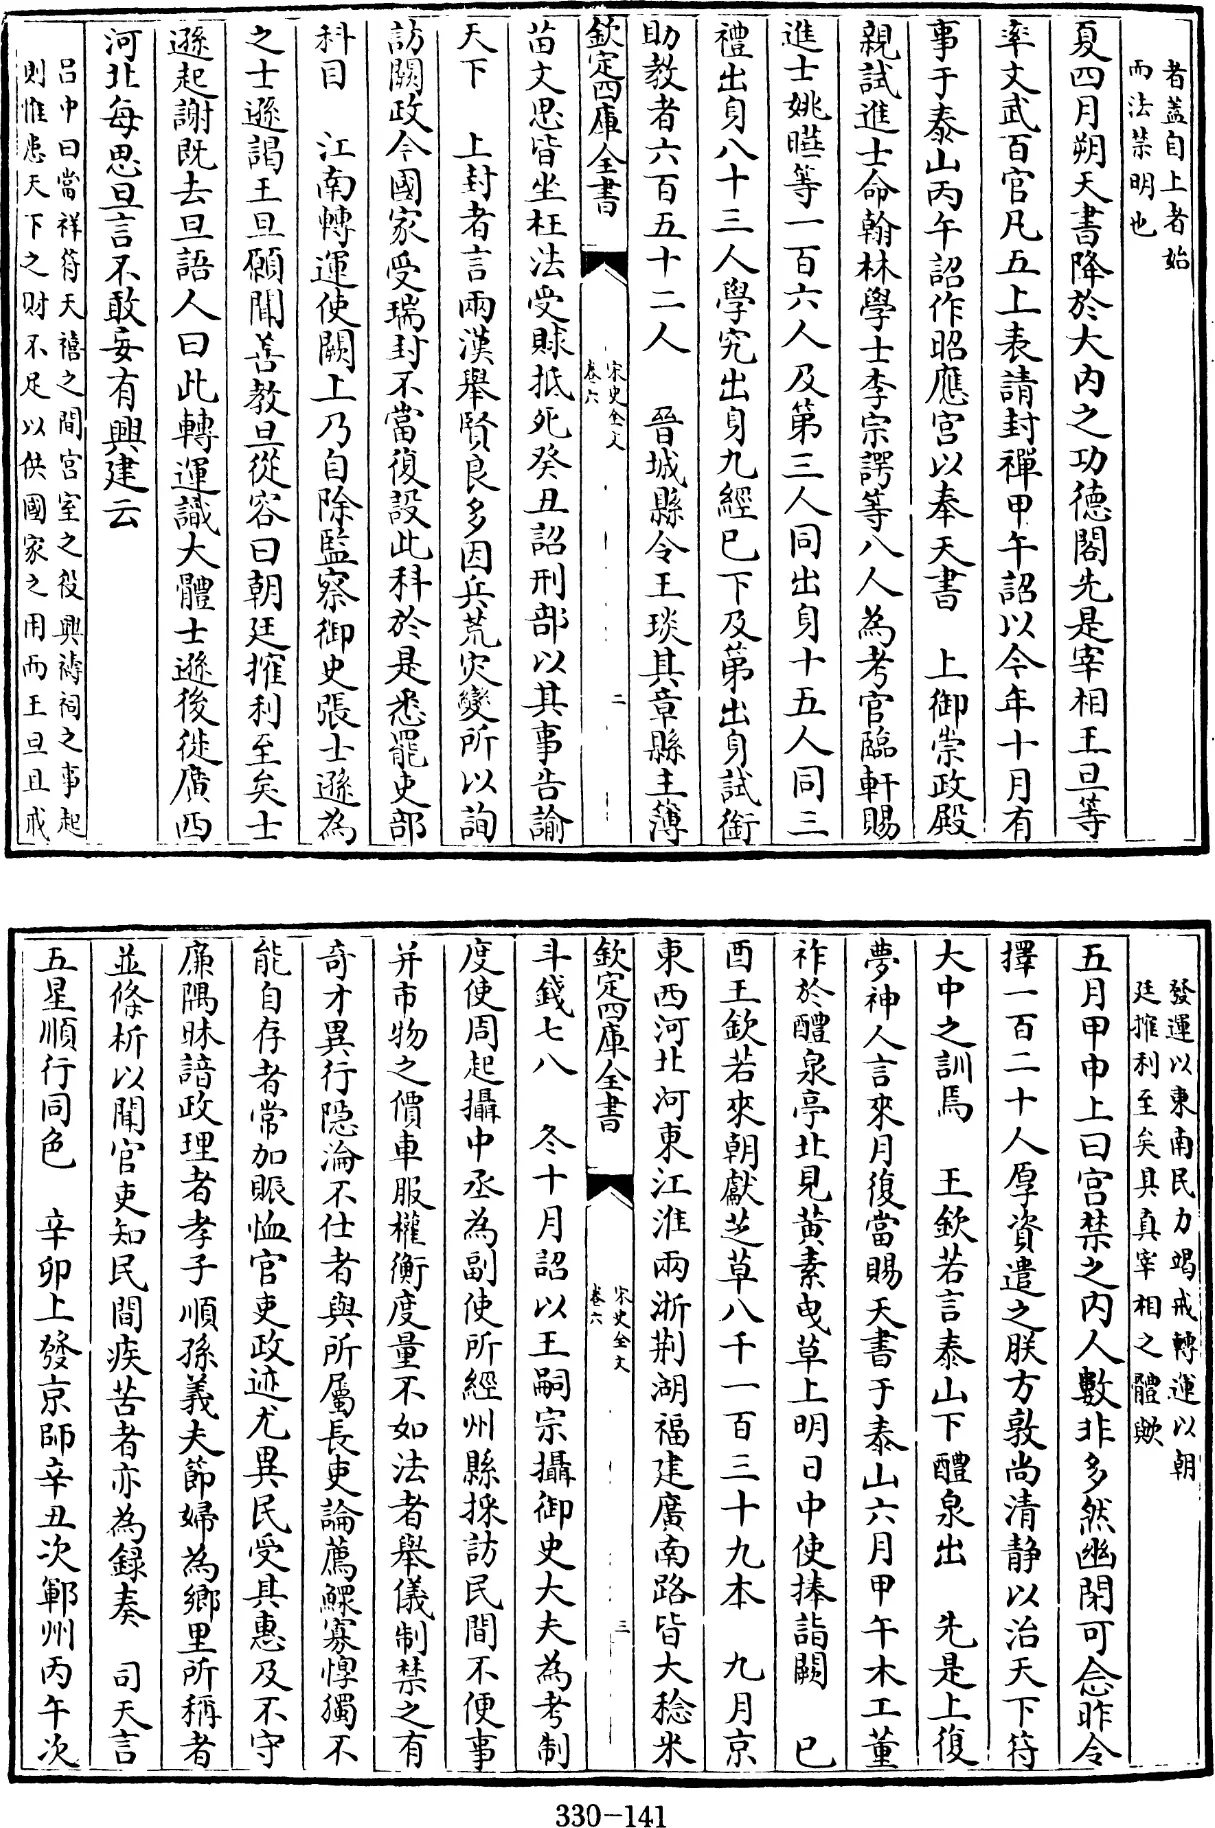 者蓋自上者始
而法禁明也
夏四月朔天書降於大內之功德閣先是宰相王旦等
率文武百官凡五上表請封禪甲午詔以今年十月有
事于泰山丙午詔作昭應宮以奉天書　上御崇政殿
親試進士命翰林學士李宗諤等八人為考官臨軒賜
進士姚曄等一百六人及第三人同出身十五人同三
禮出身八十三人學究出身九經已下及第出身試銜
助教者六百五十二人　晉城縣令王琰其章縣主簿
欽定四庫全書
宋史全文
卷六
二
苗文思皆坐枉法受賕抵死癸丑詔刑部以其事告諭
天下　上封者言兩漢舉賢良多因兵荒災變所以詢
訪闕政今國家受瑞封不當復設此科於是悉罷吏部
科目　江南轉運使闕上乃自除監察御史張士遜為
之士遜謁王旦願聞善教旦從容曰朝廷搉利至矣士
遜起謝既去旦語人曰此轉運識大體士遜後徙廣西
河北每思旦言不敢妄有興建云
呂中曰當祥符天禧之間宮室之役興禱祠之事起
則惟患天下之財不足以供國家之用而王旦且戒
發運以東南民力竭戒轉運以朝
廷搉利至矣具真宰相之體歟
五月甲申上曰宮禁之內人數非多然幽閉可念昨令
擇一百二十人厚資遣之朕方敦尚清靜以治天下符
大中之訓焉　王欽若言泰山下醴泉出　先是上復
夢神人言來月復當賜天書于泰山六月甲午木工董
祚於醴泉亭北見黃素曳草上明日中使捧詣闕　巳
酉王欽若來朝獻芝草八千一百三十九本　九月京
東西河北河東江淮兩浙荆湖福建廣南路皆大稔米
欽定四庫全書
宋史全文
卷六
三
斗錢七八　冬十月詔以王嗣宗攝御史大夫為考制
度使周起攝中丞為副使所經州縣採訪民間不便事
并市物之價車服權衡度量不如法者舉儀制禁之有
奇才異行隱淪不仕者與所屬長吏論薦鰥寡惸獨不
能自存者常加賑恤官吏政迹尤異民受其惠及不守
廉隅昧諳政理者孝子順孫義夫節婦為鄉里所稱者
並條析以聞官吏知民間疾苦者亦為錄奏　司天言
五星順行同色　辛卯上發京師辛丑次鄆州丙午次
330-141